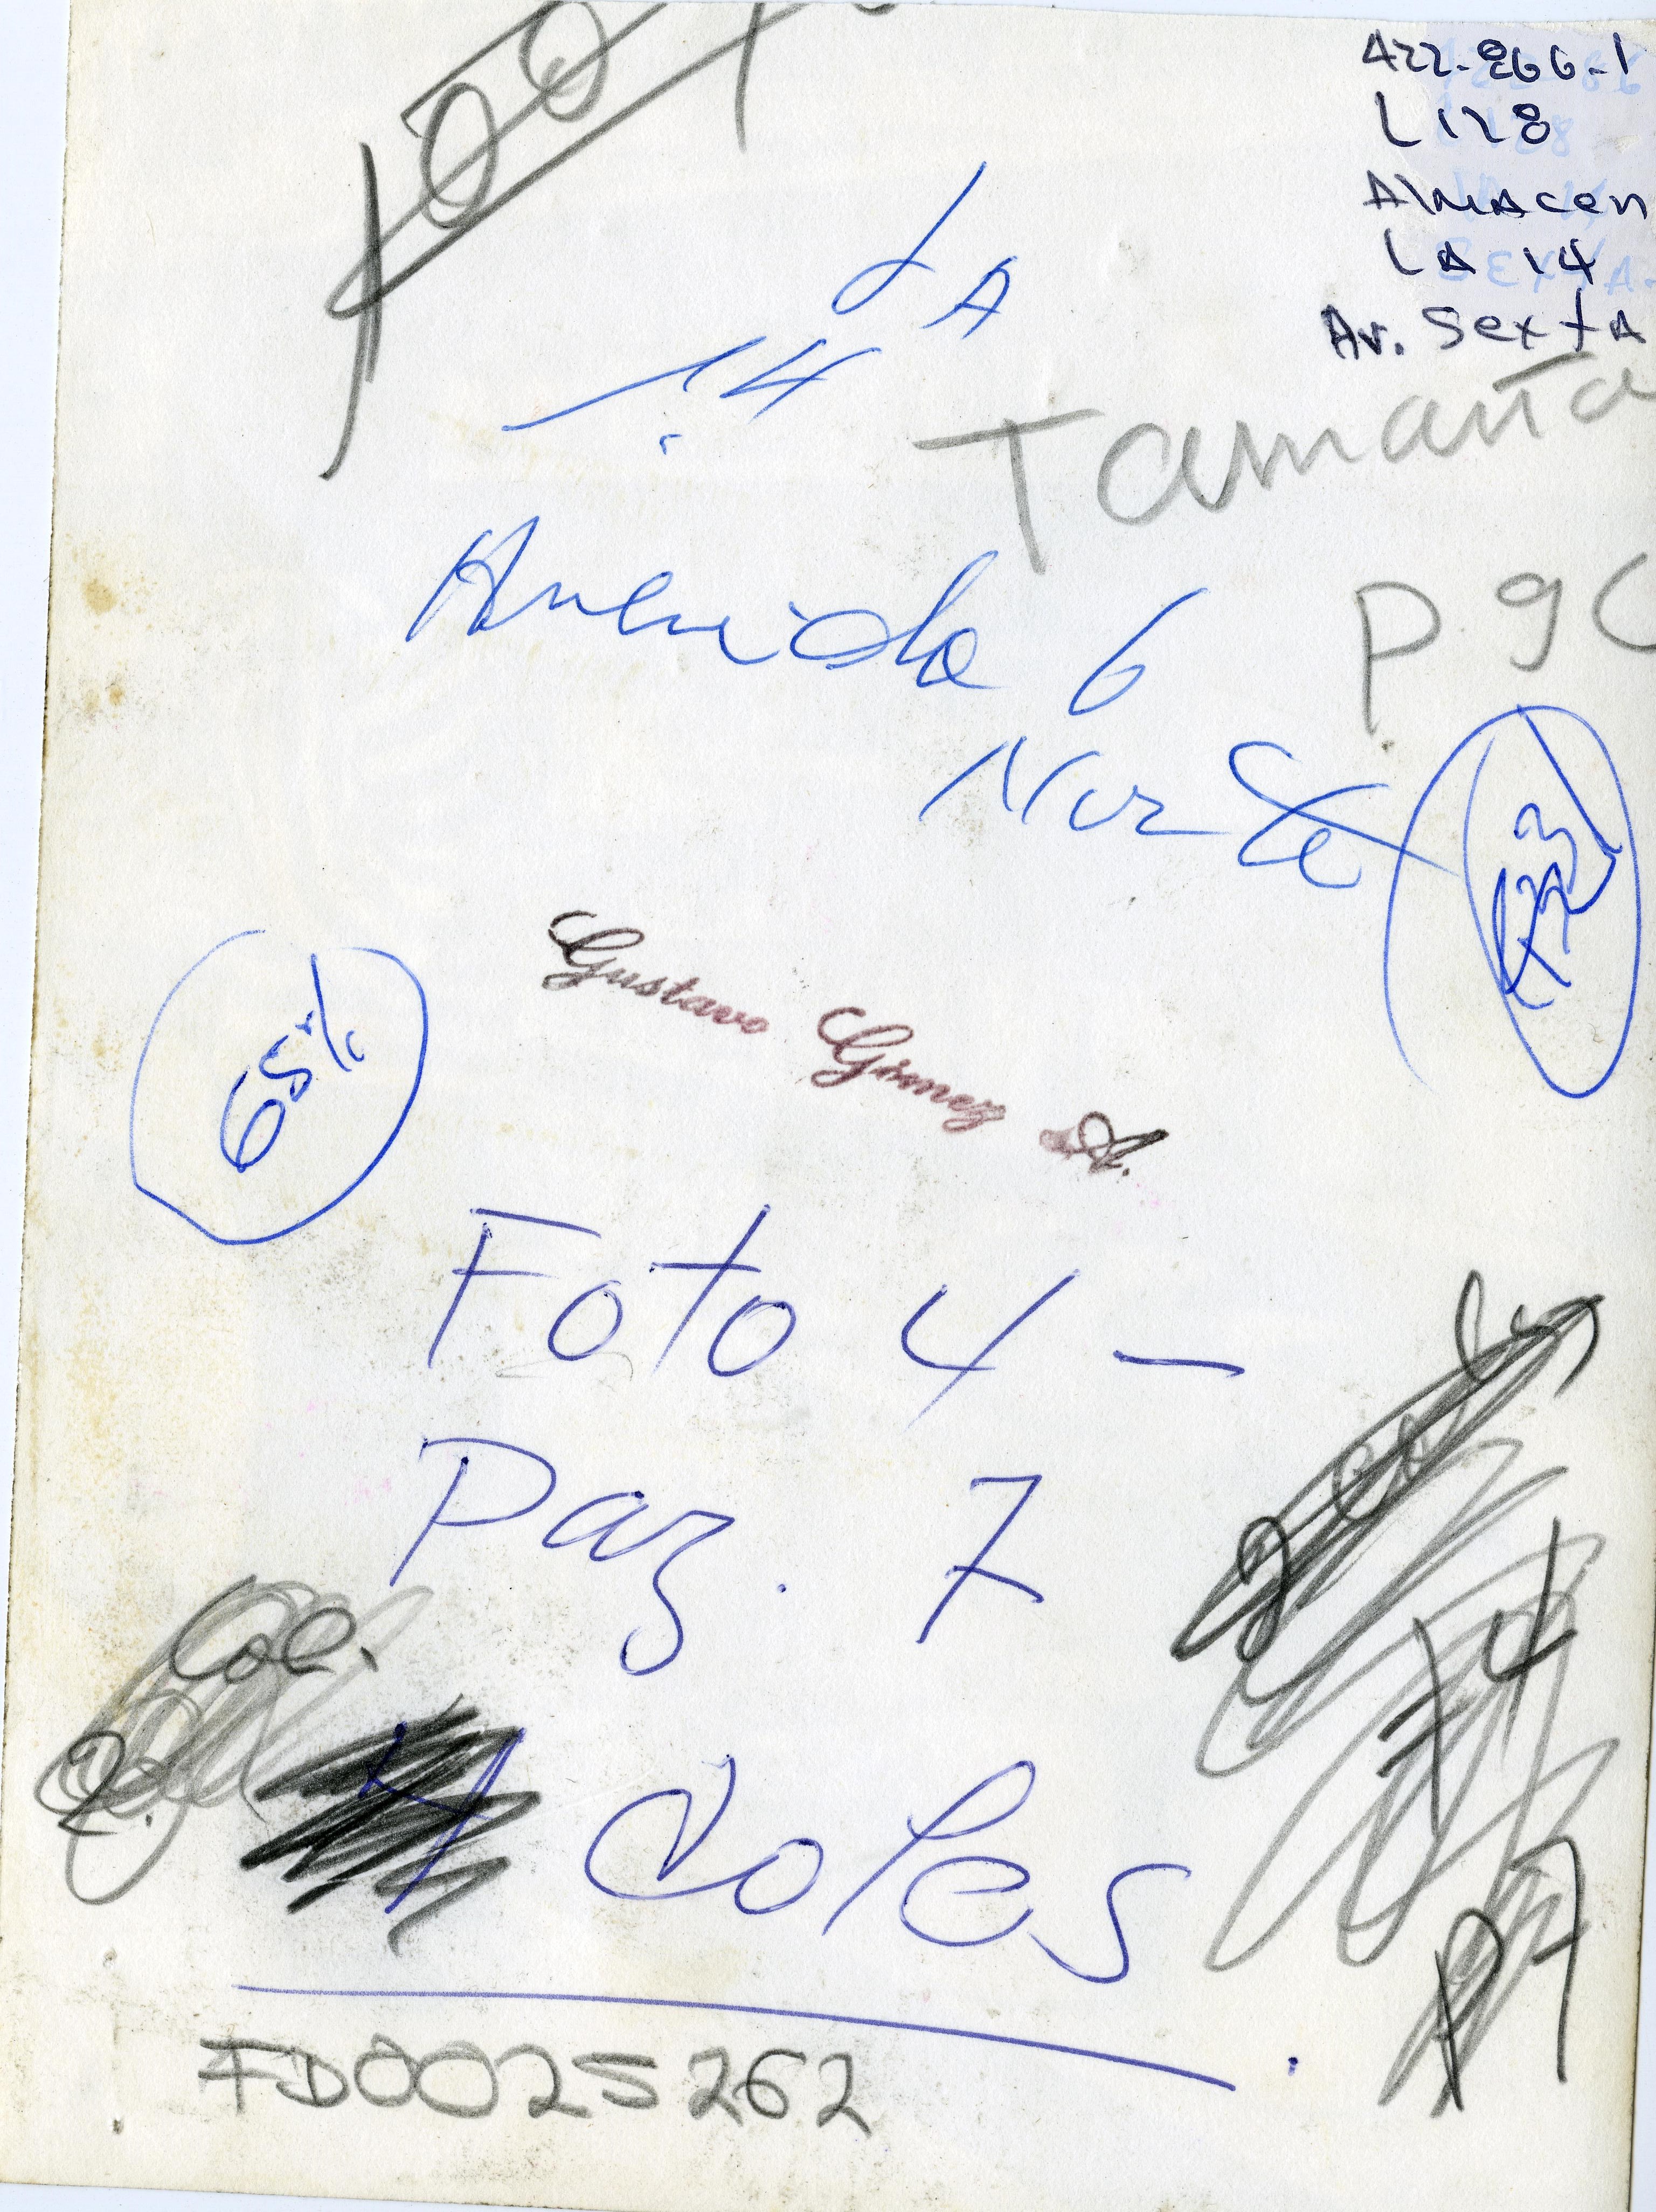 422-866-1
L 128
ALMACEN
LA 14
Av. SextA
LA
14
Tamaño
Avenida 6
Norte
65%
Gustavo Gómez A.
Foto 4 -
Pag. 7
4 Coles
Col.
2.
14
P7
FD0025262